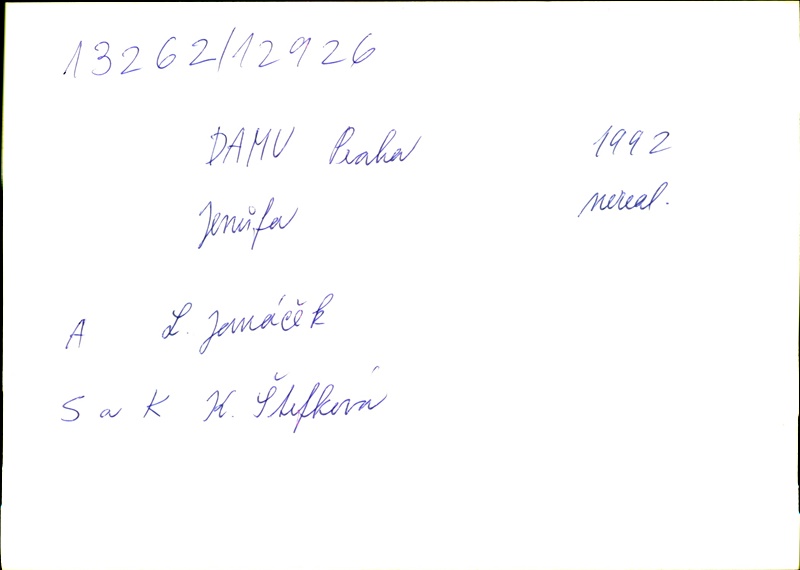 13262/12926
DAMU Praha 1992
Jenůfa nereal.
A L. Janáček
S a K K. Štefková